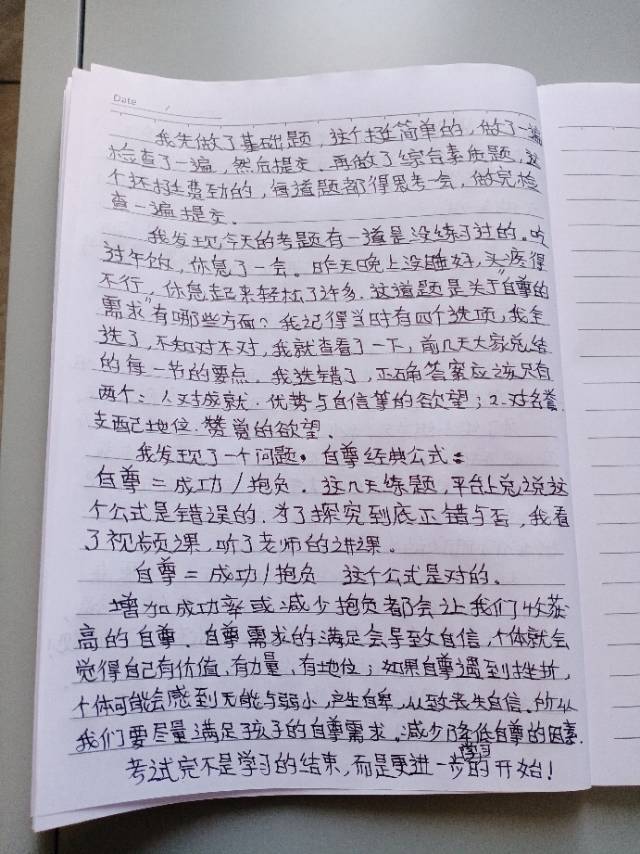 Date /
我先做了基础题，这个挺简单的，做了一遍
检查了一遍，然后提交．再做了综合素质题，这
个还挺费劲的，每道题都得思考一会，做完检
查一遍提交．
我发现今天的考题有一道是没练习过的。吃
过午饭，休息了一会。昨天晚上没睡好，头疼得
不行，休息起来轻松了许多．这道题是关于"自尊的
需求"有哪些方面？我记得当时有四个选项，我全
选了，不知对不对，我就查看了一下，前几天大家总结
的每一节的要点．我选错了，正确答案应该只有
两个：1.对成就．优势与自信等的欲望；2.对名誉．
支配地位．赞赏的欲望．
我发现了一个问题．自尊经典公式：
自尊＝成功/抱负．这几天练题，平台上总说这
个公式是错误的．为了探究到底正错与否，我看
了视频课，听了老师的讲课。
自尊＝成功/抱负 这个公式是对的．
增加成功率或减少抱负都会让我们收获
高的自尊．自尊需求的满足会导致自信，个体就会
觉得自己有价值，有力量，有地位；如果自尊遇到挫折，
个体可能会感到无能与弱小，产生自卑，从致丧失自信．所以
我们要尽量满足孩子的自尊需求．减少降低自尊的因素．
考试完不是学习的结束，而是更进一步学习的开始！